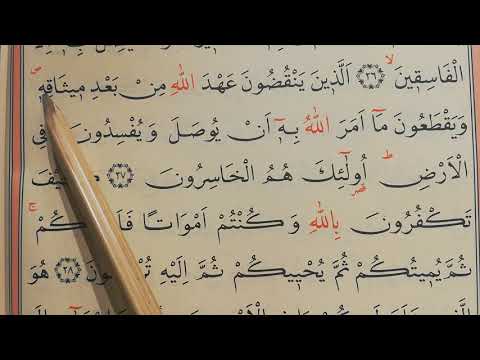 الْفَاسِقِينَۙ ﴿٢٦﴾ اَلَّذِينَ يَنْقُضُونَ عَهْدَ اللّٰهِ مِنْ بَعْدِ مِيثَاقِهِ
وَيَقْطَعُونَ مَٓا اَمَرَ اللّٰهُ بِهِٓ اَنْ يُوصَلَ وَيُفْسِدُونَ فِى
الْاَرْضِۜ اُولٰٓئِكَ هُمُ الْخَاسِرُونَ ﴿٢٧﴾
تَكْفُرُونَ بِاللّٰهِ وَكُنْتُمْ اَمْوَاتًا
ثُمَّ يُمِيتُكُمْ ثُمَّ يُحْيِيكُمْ ثُمَّ اِلَيْهِ ﴿٢٨﴾ هُوَ